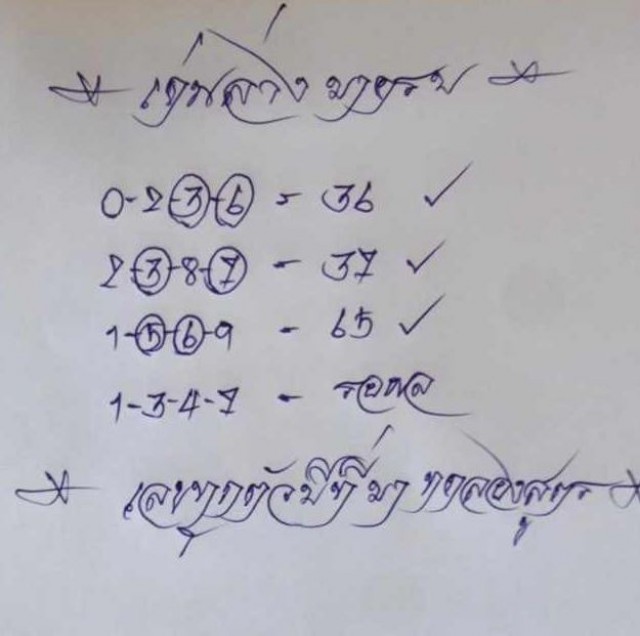 * เด่นล่าง มายครบ *
0-2-3-6 = 36 ✓
2-3-8-7 - 37 ✓
1-5-6-9 - 65 ✓
1-3-4-7 - รอผล
* เลขทุกตัวมีที่มา ทดลองสูตร *